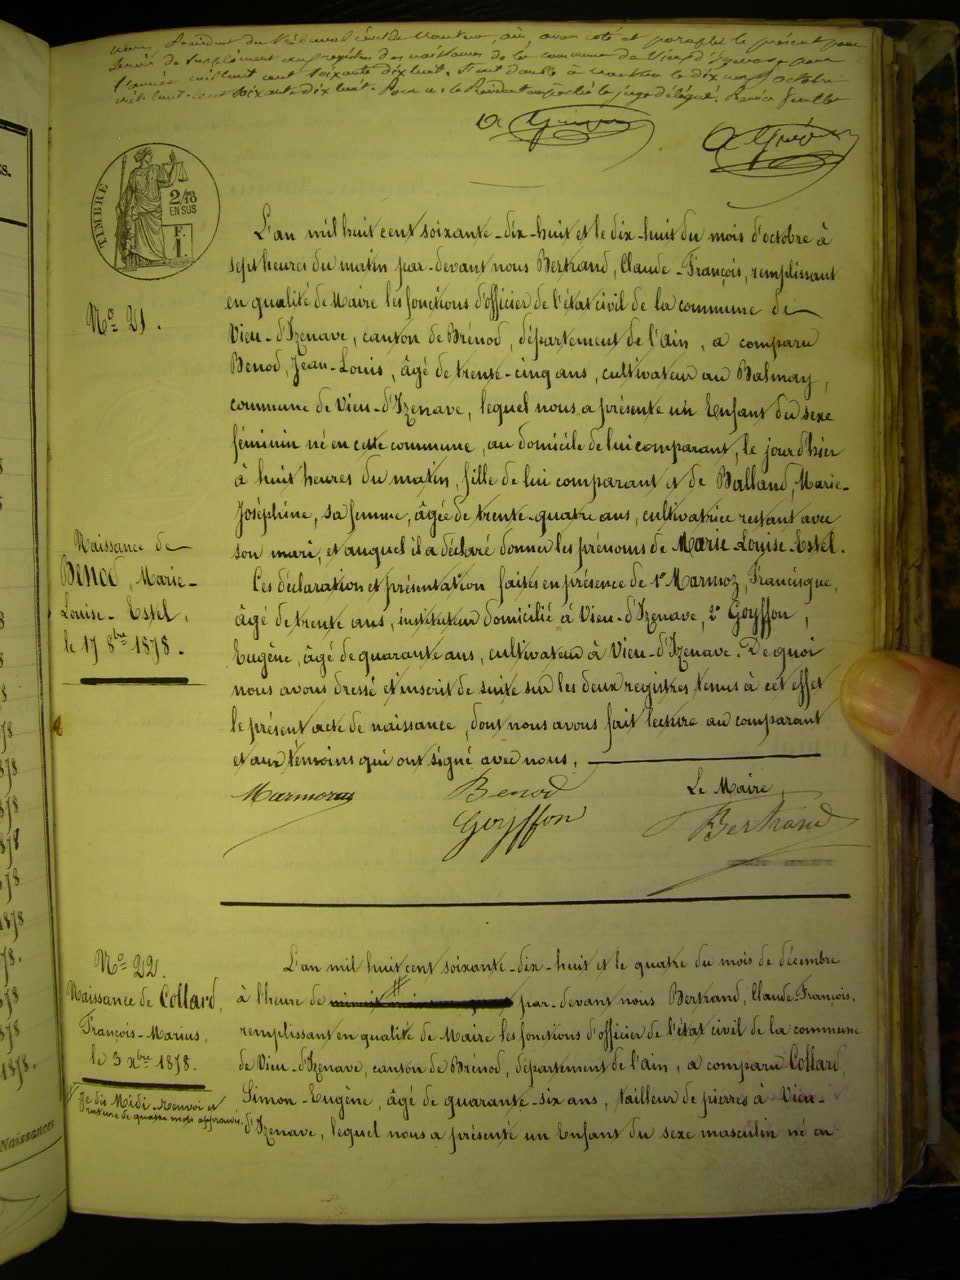 Nous, Président du Tribunal civil de Nantua, ain, avons coté et paraphé le présent pour
servir de supplément au registre des naissances de la commune de Vieu d'Izenave, pour
l'année mil huit cent soixante dix huit. Fait double à Nantua le dix sept octobre
mil huit-cent soixante dix huit. Pour le Président empêché le juge délégué. Premier feuillet
TIMBRE
2/10
EN SUS
F.
1.
L'an mil huit cent soixante-dix-huit et le dix-huit du mois d'octobre à
sept heures du matin par-devant nous Bertrand, Claude-François, remplissant
en qualité de Maire les fonctions d'officier de l'état civil de la commune de
Nº 21.
Vieu-d'Izenave, canton de Brénod, département de l'ain, a comparu
Benod, Jean-Louis, âgé de trente-cinq ans, cultivateur au Balmay,
commune de Vieu-d'Izenave, lequel nous a présenté un Enfant du sexe
féminin né en cette commune, au domicile de lui comparant, le jour d'hier
à huit heures du matin, fille de lui comparant et de Balland, Marie-
Joséphine, sa femme, âgée de trente-quatre ans, cultivatrice restant avec
son mari, et auquel il a déclaré donner les prénoms de Marie-Louise-Estel.
Naissance de
Benod, Marie-
Louise-Estel,
le 17 8bre 1878.
Ces déclaration et présentation faites en présence de 1º Marmoz, Francisque,
âgé de trente ans, instituteur domicilié à Vieu-d'Izenave, 2º Goyffon,
Eugène, âgé de quarante ans, cultivateur à Vieu-d'Izenave. De quoi
nous avons dressé et inscrit de suite sur les deux registres tenus à cet effet
le présent acte de naissance, dont nous avons fait lecture au comparant
et aux témoins qui ont signé avec nous.
Marmoz Benod Le Maire,
Goyffon Bertrand
Nº 22.
Naissance de Collard,
François-Marius,
le 3 xbre 1878.
Je dis Midi. Renvoi et
rature de quatre mots approuvés.
L'an mil huit cent soixante-dix-huit et le quatre du mois de décembre
à l'heure de # par-devant nous Bertrand, Claude-François,
remplissant en qualité de Maire les fonctions d'officier de l'état civil de la commune
de Vieu-d'Izenave, canton de Brénod, département de l'ain, a comparu Collard,
Simon-Eugène, âgé de quarante-six ans, tailleur de pierres à Vieu-
d'Izenave, lequel nous a présenté un Enfant du sexe masculin né en
s.
878
1878
1878.
Naissances